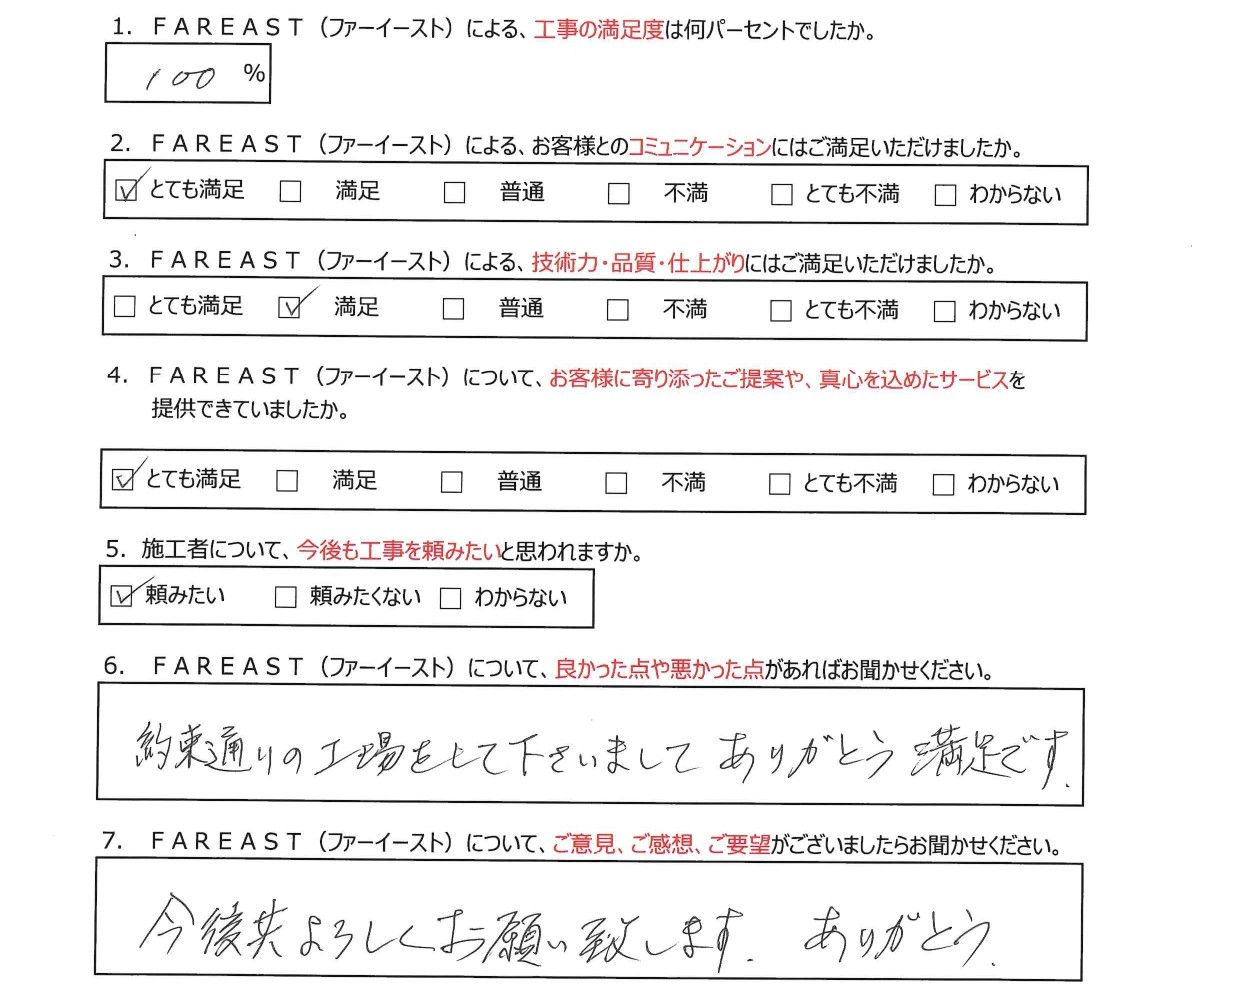 1. FAREAST（ファーイースト）による、工事の満足度は何パーセントでしたか。
100 %
2. FAREAST（ファーイースト）による、お客様とのコミュニケーションにはご満足いただけましたか。
☑ とても満足 □ 満足 □ 普通 □ 不満 □ とても不満 □ わからない
3. FAREAST（ファーイースト）による、技術力・品質・仕上がりにはご満足いただけましたか。
□ とても満足 ☑ 満足 □ 普通 □ 不満 □ とても不満 □ わからない
4. FAREAST（ファーイースト）について、お客様に寄り添ったご提案や、真心を込めたサービスを
提供できていましたか。
☑ とても満足 □ 満足 □ 普通 □ 不満 □ とても不満 □ わからない
5. 施工者について、今後も工事を頼みたいと思われますか。
☑ 頼みたい □ 頼みたくない □ わからない
6. FAREAST（ファーイースト）について、良かった点や悪かった点があればお聞かせください。
約束通りの工場をして下さいまして ありがとう 満足です.
7. FAREAST（ファーイースト）について、ご意見、ご感想、ご要望がございましたらお聞かせください。
今後共よろしくお願い致します. ありがとう.